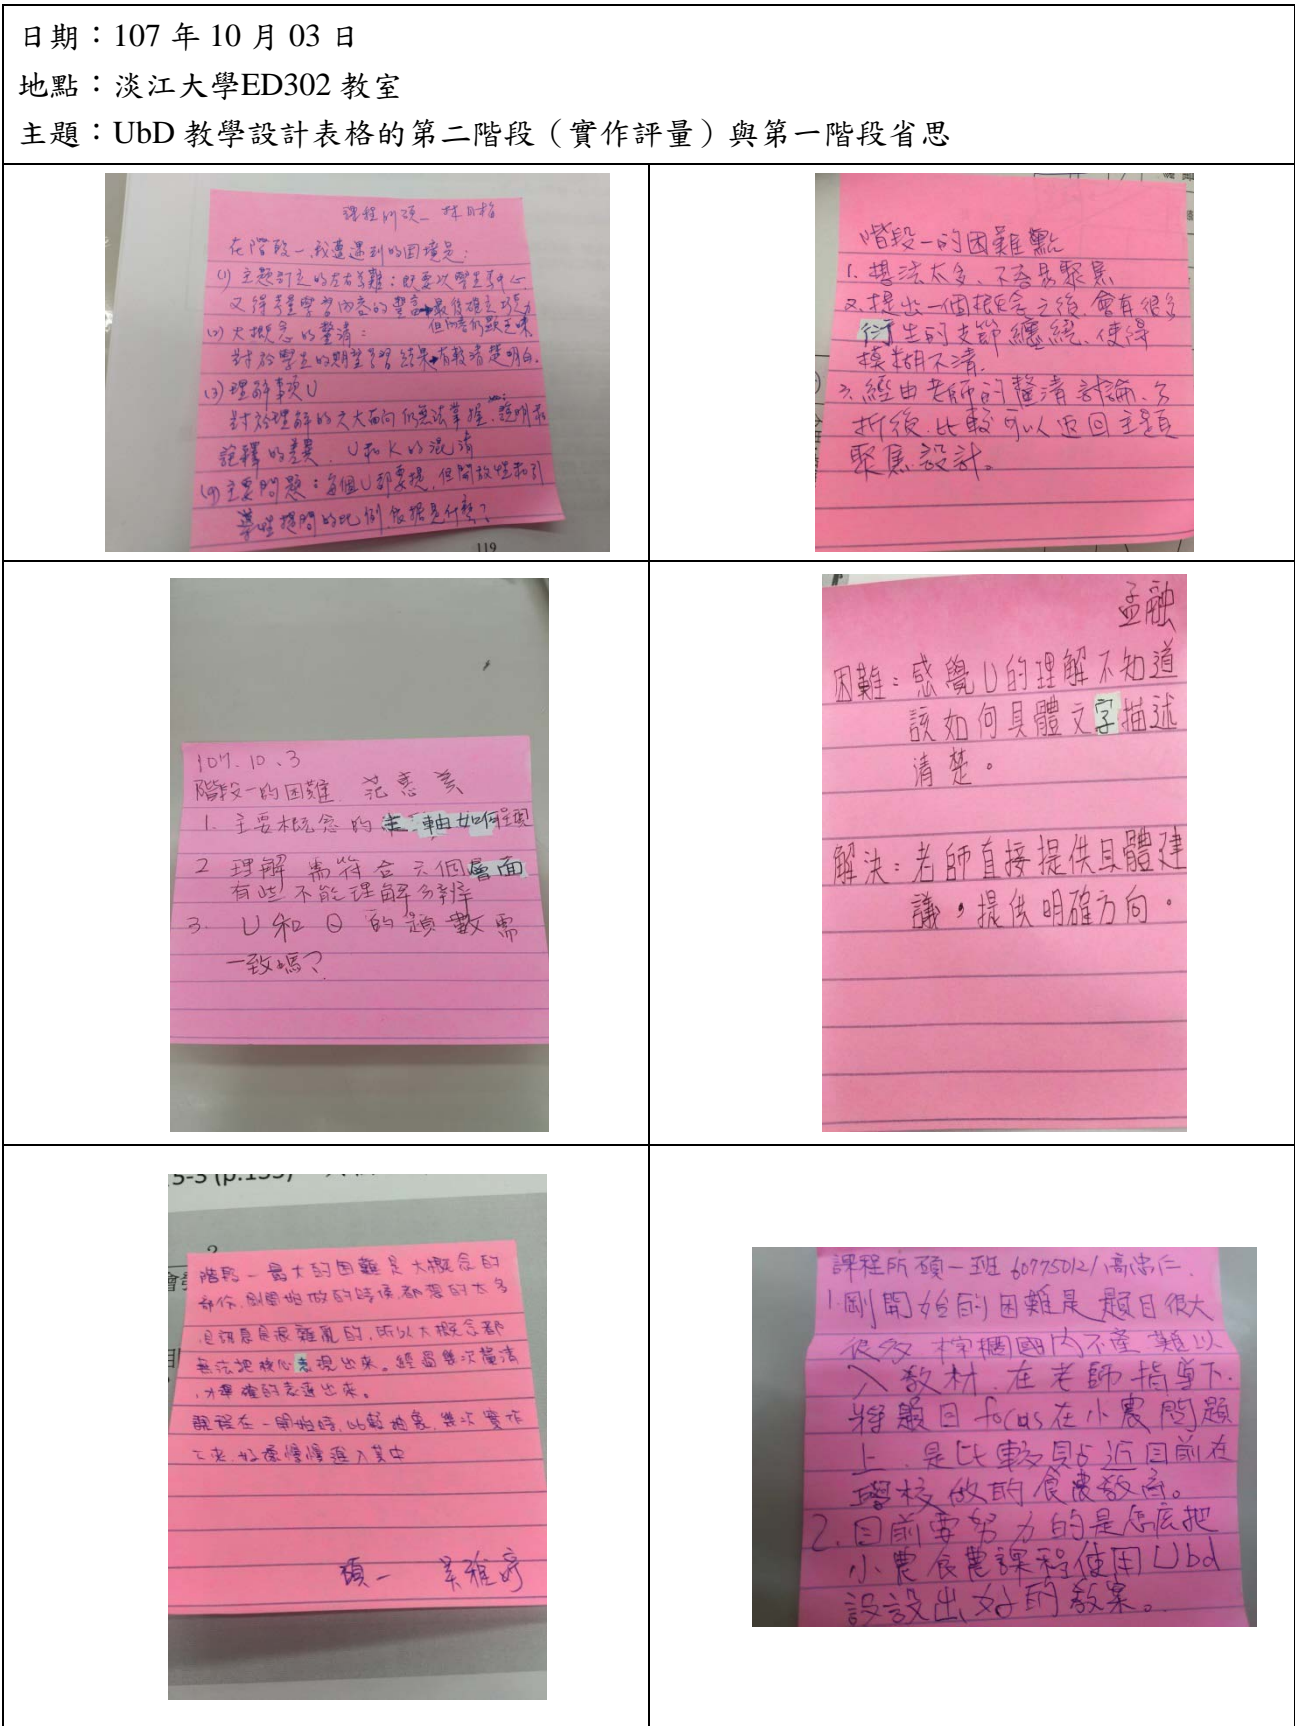 日期：107 年 10 月 03 日
地點：淡江大學ED302 教室
主題：UbD 教學設計表格的第二階段（實作評量）與第一階段省思
課程所碩一 林
在階段一,我遭遇到的困境是:
(1) 主題訂定的左右為難:既要以學生為中心
又得考量學習內容的豐富→最後確立巧克力
但內容仍顯乏味
(2) 大概念的釐清:
對於學生的期望學習結果→有較清楚明白.
(3) 理解事項U
對於理解的六大面向仍無法掌握,說明和
詮釋的差異、U和K的混淆
(4) 主要問題:每個U都要提,但開放性和引
導性提問的比例依據是什麼?
119
階段一的困難點
1. 想法太多、不容易聚焦
2. 提出一個概念之後,會有很多
衍生的支節纏繞、使得
模糊不清.
3. 經由老師的釐清討論、分
析後,比較可以返回主題
聚焦設計。
107.10.3
階段一的困難 范惠美
1. 主要概念的主軸如何呈現
2 理解需符合六個層面
有些不能理解分辨
3. U和Q的題數需
一致嗎?
孟融
困難:感覺U的理解不知道
該如何具體文字描述
清楚。
解決:老師直接提供具體建
議,提供明確方向。
5-3 (p.133)
階段一最大的困難是大概念的
部份,剛開始做的時候,都想的太多
但訊息是很雜亂的,所以大概念都
無法把核心表現出來。經過幾次釐清
,才準確的表達出來。
課程在一開始時,比較抽象,幾次實作
下來,好像慢慢進入其中
碩一 雅婷
課程所碩一班 607750121 高忠仁
1.剛開始的困難是題目很大
很多 國內不產難以
入教材.在老師指導下.
將題目focus在小農問題
上.是比較貼近目前在
學校做的食農教育。
2.目前要努力的是怎底把
小農食農課程使用Ubd
設設出好的教案。